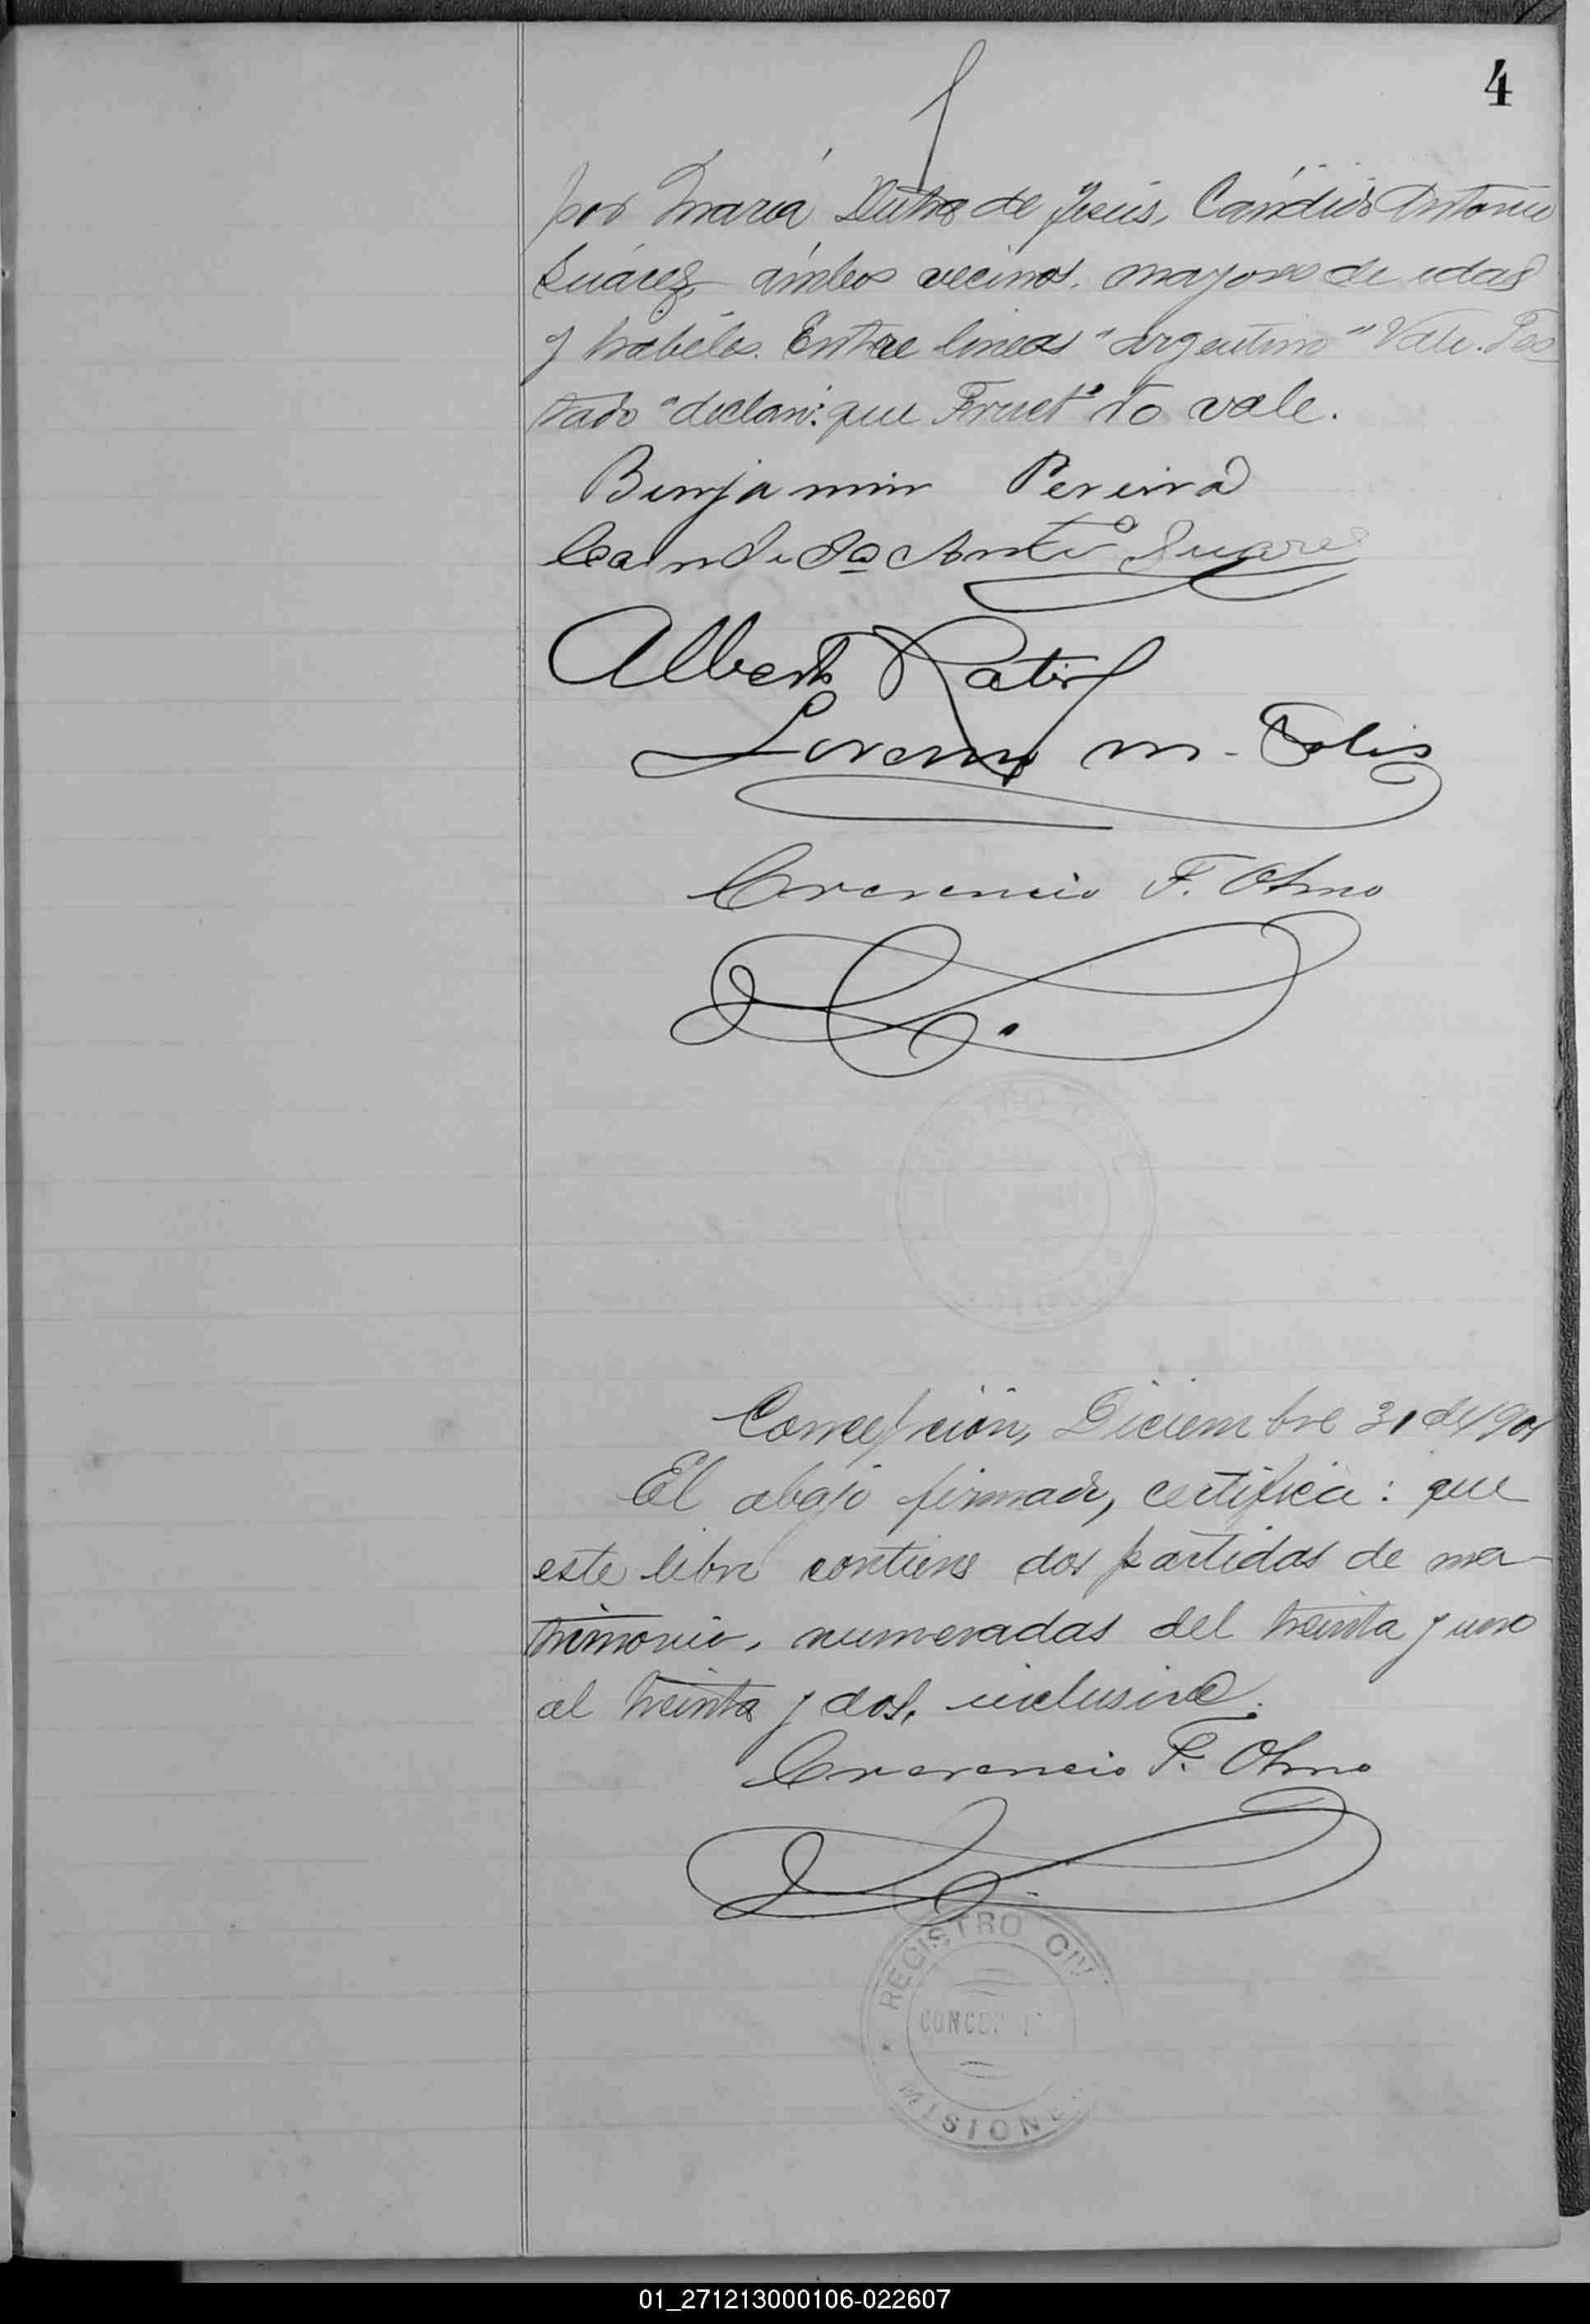 4
por María Dutra de Jesús, Cándido Antonio
Suárez, ámbos vecinos, mayores de edad
y habiles. Entre lineas "argentino" Vale. Tes
tado "declaró: que Fruct" no vale.
Benjamin Pereira
Candido Antº Suares
Alberto
Lorenzo M. Solis
Crecencio F. Olmo
Concepción, Diciembre 31 de 1901
El abajo firmado, certifica: que
este libro contiene dos partidas de ma-
trimonio, numeradas del treinta y uno
al treinta y dos, inclusive.
Crecencio F. Olmo
REGISTRO CIV
CONCEP
MISIONE
01_271213000106-022607